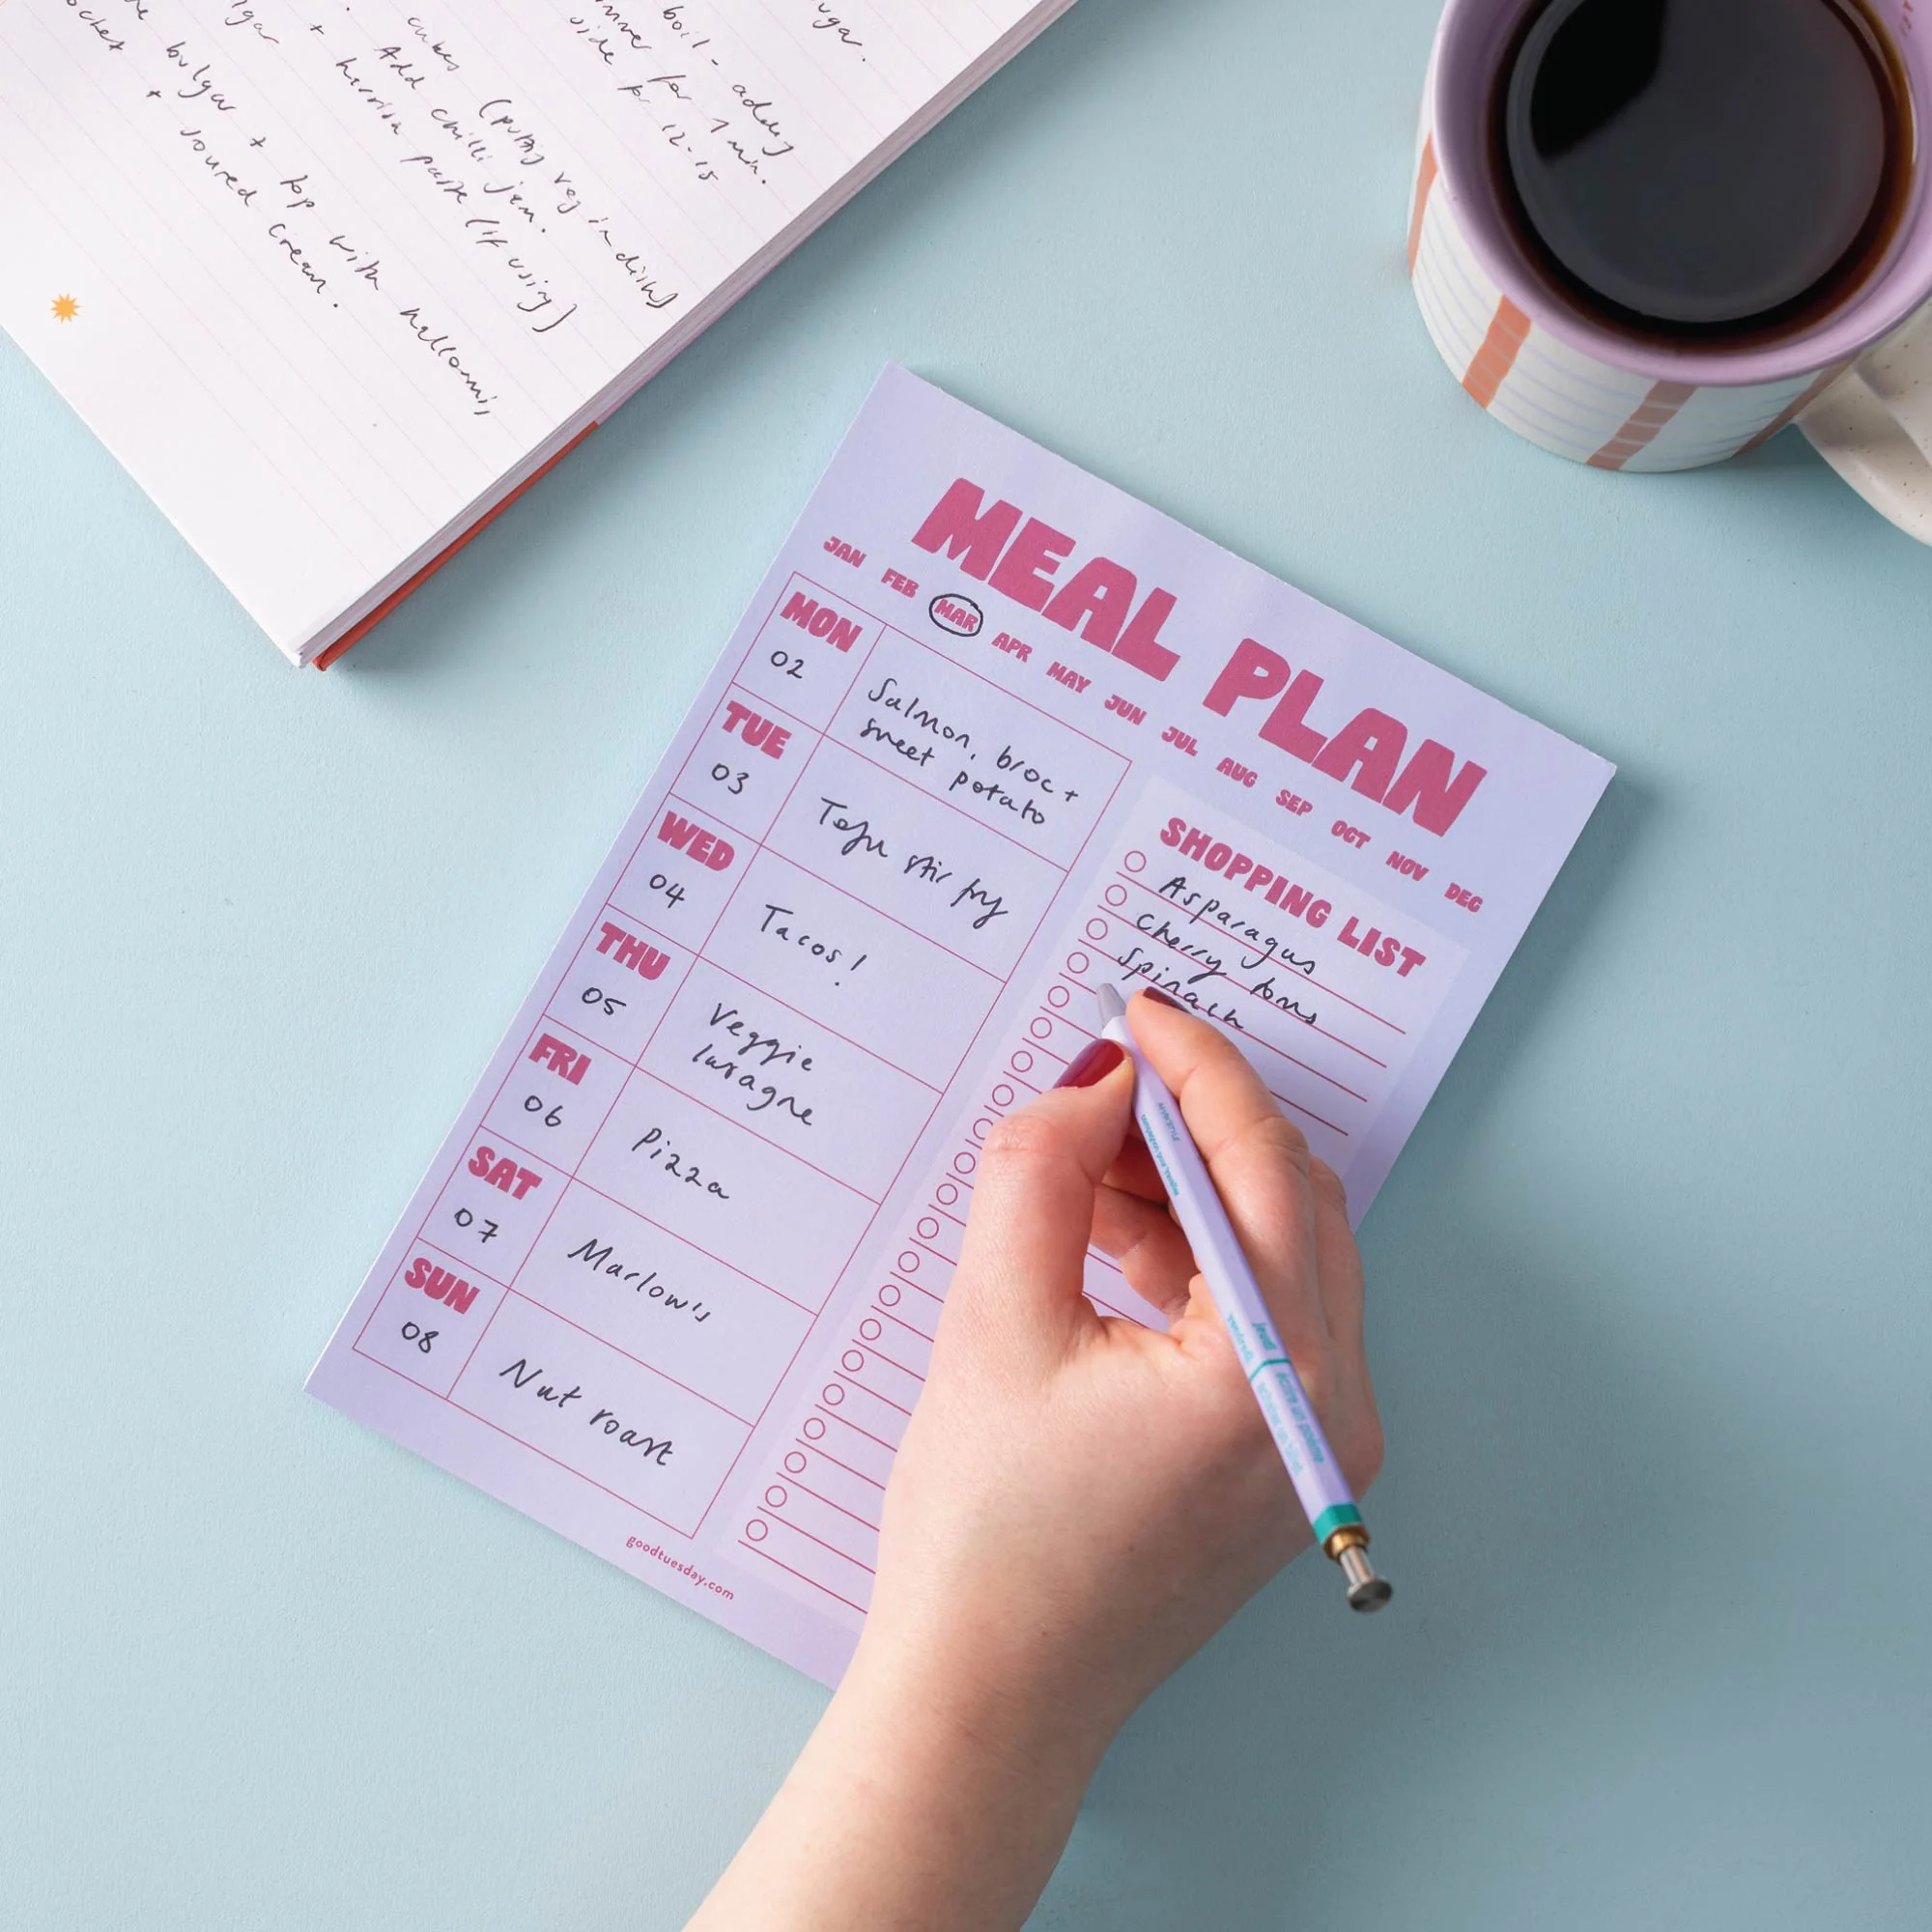 ugar.
boil - adding
for 7 min.
side for 12-15
cubes (putting veg in dish)
Add chilli jam.
+ harissa paste (if using)
bulgar + top with halloumi,
+ soured cream.
MEAL PLAN
JAN FEB MAR APR MAY JUN JUL AUG SEP OCT NOV DEC
MON
02
Salmon, broc +
sweet potato
TUE
03
Tofu stir fry
WED
04
Tacos!
THU
05
Veggie
lasagne
FRI
06
Pizza
SAT
07
Marlow's
SUN
08
Nut roast
SHOPPING LIST
Asparagus
Cherry toms
Spinach
goodtuesday.com